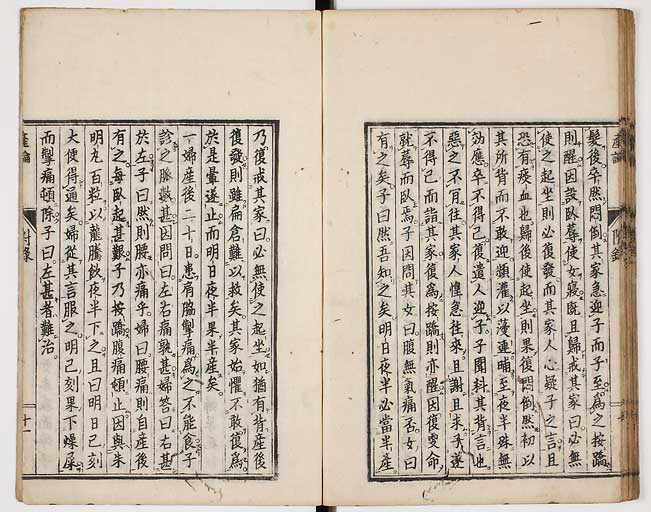 產論
附錄
髮後卒然悶倒其家急迎子而子至爲之按蹻
則醒因設臥蓐使女寢既且歸戒其家曰必無
使之起坐則必復發而其家人心疑子之言且
恐有瘀血也歸後使起坐則果後悶倒然初以
其所背而不敢迎頻灌以湯連晡至夜半殊無
効應卒不得已復遣人迎子子聞料其背言也
惡之不肎往其家人惶急往來且謝且求子遂
不得已而詣其家復爲按蹻則亦醒因復受命
就蓐而臥焉子因問其女曰腹無氣痛否女曰
有之矣子曰然吾知之矣明日夜半必當半產
乃復戒其家曰必無使之起坐如猶有背產後
復發則雖倉難以救矣其家始懼不敢復爲
於是暈遂止而明日夜半果半產矣
一婦產後二十日患肩脇攣痛爲之不能食子
診之脉數甚因問曰左右痛孰甚婦答曰右甚
於左子曰然則腰亦痛乎婦曰腰痛則自產後
有之每臥起甚艱子乃按蹻腹痛頓止因與朱
明丸百粒以龍騰飲夜半下之且曰明日巳刻
大便得通矣婦從其言服之明巳刻果下燥屎
而攣痛頓除子曰左甚者難治
產論
附錄
十一